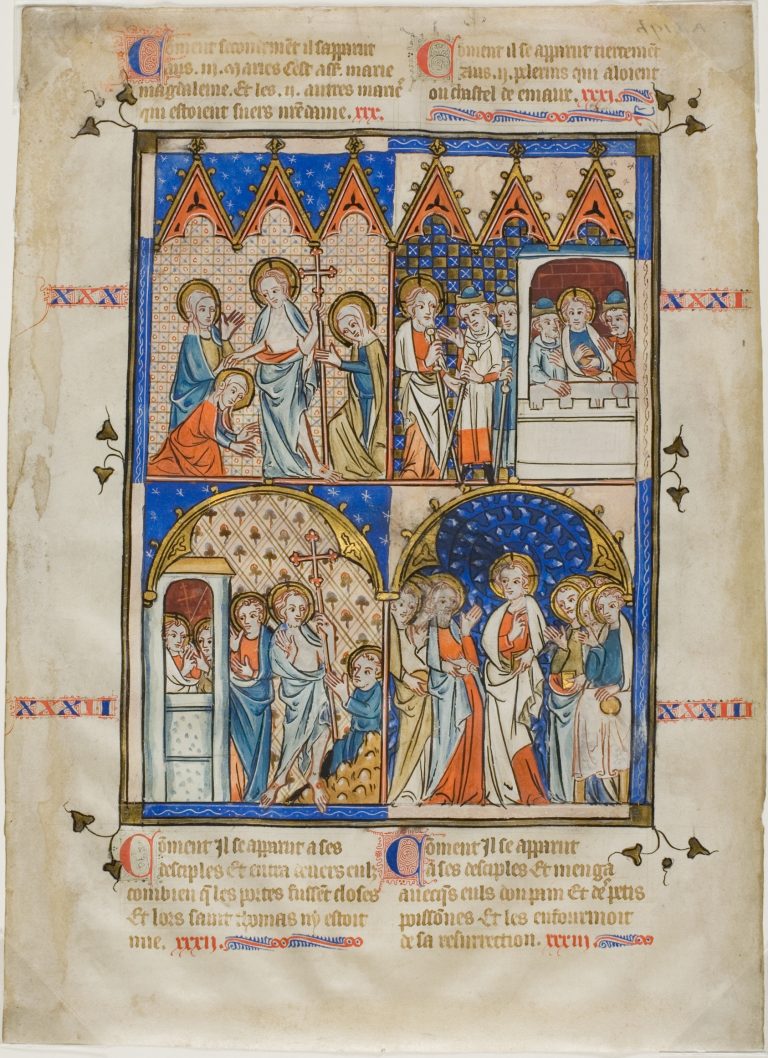 Cōment secondemēt il sapparut
aus .iii. Maries Cest ass. marie
magdaleine. Et les .ii. autres maries
qui estoient suers nrē dame. xxx.
Cōment il se apparut tiercemēt
aus .ii. pelerins qui aloient
ou chastel de emaux. xxxi.
XXX
XXXI
XXXII
XXXIII
Cōment Il se apparut a ses
desciples Et entra deuers eulz
combien q̄ les portes fussent closes
Et lors saint thomas ny estoit
mie. xxxii.
Cōment Il se apparut
a ses desciples Et menga
auecq̄s euls don pain Et de petis
poissōnes Et les enfourmoit
de sa resurrection. xxxiii.